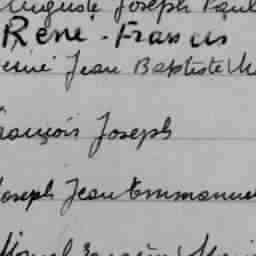 Auguste Joseph Paul
René - Francis
Jean Baptiste
François Joseph
Joseph Jean Emmanuel